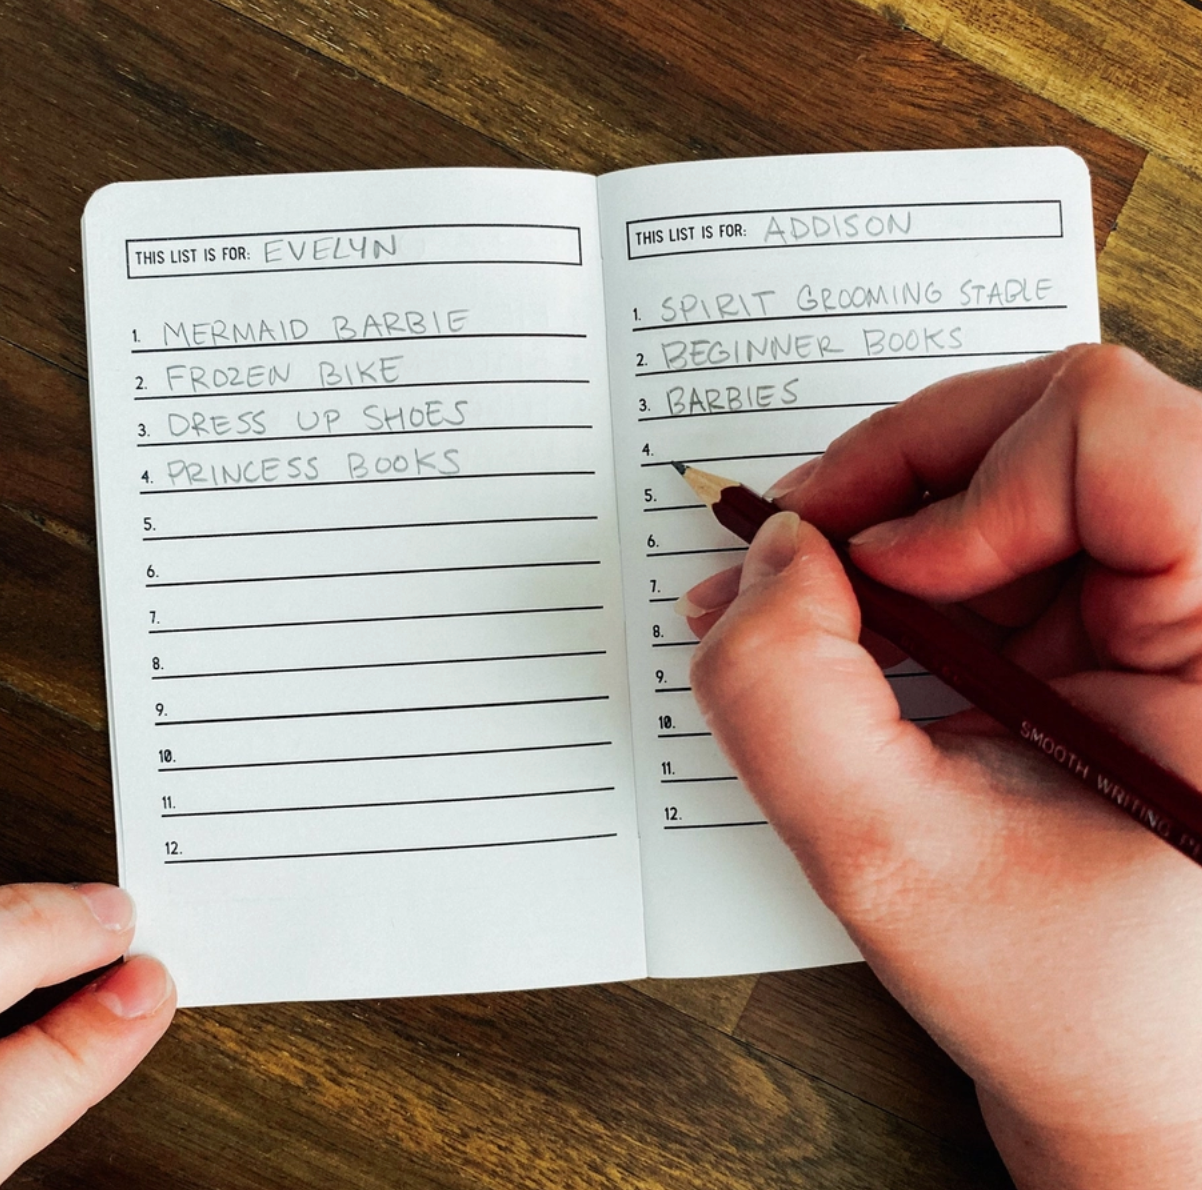 THIS LIST IS FOR: EVELYN
1. MERMAID BARBIE
2. FROZEN BIKE
3. DRESS UP SHOES
4. PRINCESS BOOKS
5.
6.
7.
8.
9.
10.
11.
12.
THIS LIST IS FOR: ADDISON
1. SPIRIT GROOMING STABLE
2. BEGINNER BOOKS
3. BARBIES
4.
5.
6.
7.
8.
9.
10.
11.
12.
SMOOTH WRITING